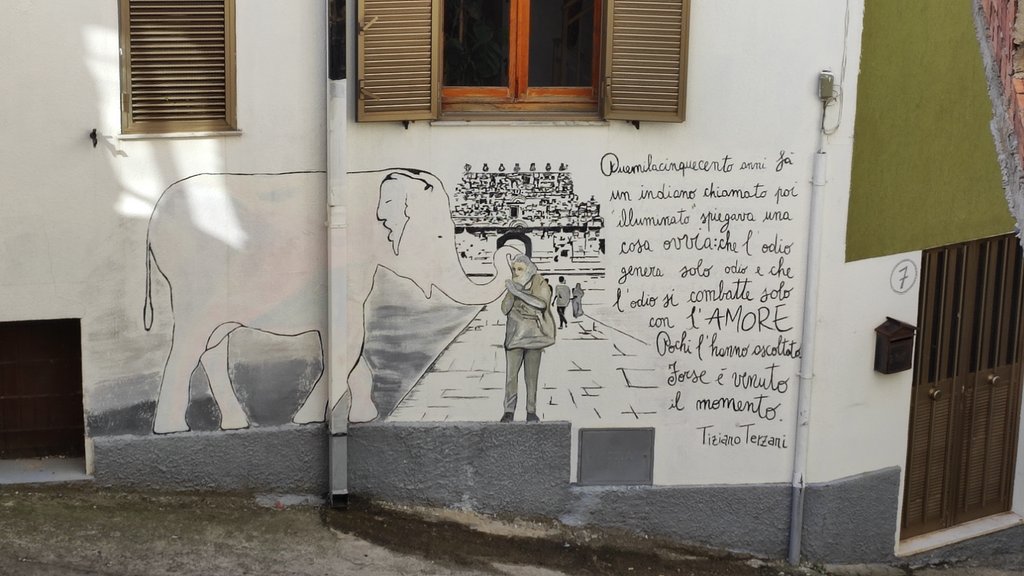 Duemilacinquecento anni fà
un indiano chiamato poi
"illuminato" spiegava una
cosa ovvia: che l'odio
genera solo odio e che
l'odio si combatte solo
con l'AMORE
Pochi l'hanno ascoltato
Forse é venuto
il momento.
Tiziano Terzani
7